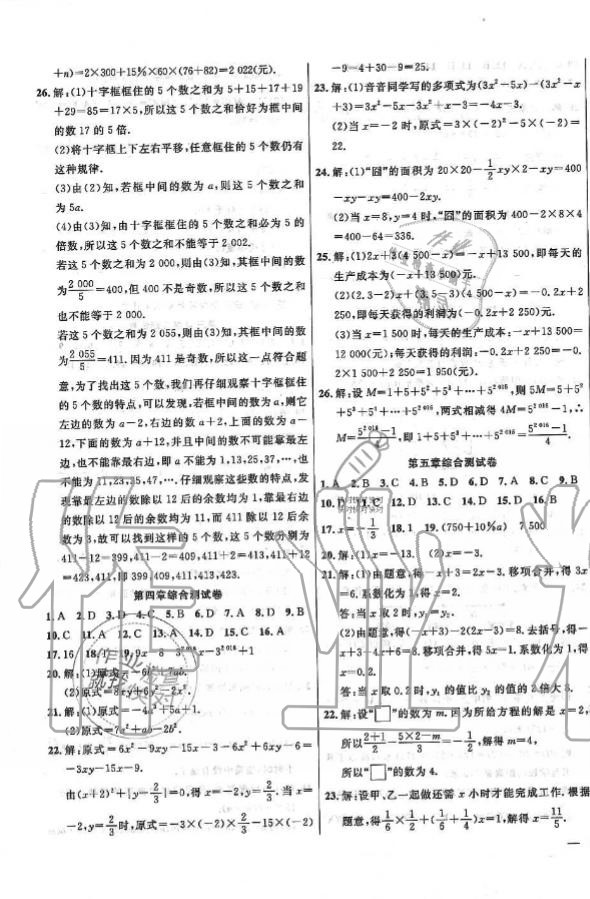 +n)=2×300+15%×60×(76+82)=2 022(元).
26.解:(1)十字框框住的 5 个数之和为 5+15+17+19
+29=85=17×5,所以这 5 个数之和恰好为框中间
的数 17 的 5 倍.
(2)将十字框上下左右平移,任意框住的 5 个数仍有
这种规律.
(3)由(2)知,若框中间的数为 a,则这 5 个数之和
为 5a.
(4)由(3)知,由十字框框住的 5 个数之和必为 5 的
倍数,所以这 5 个数之和不能等于 2 002.
若这 5 个数之和为 2 000,则由(3)知,其框中间的数
为2 000/5=400,但 400 不是奇数,所以这 5 个数之和
也不能等于 2 000.
若这 5 个数之和为 2 055,则由(3)知,其框中间的数
为2 055/5=411.因为 411 是奇数,所以这一点符合题
意,为了找出这 5 个数,我们再仔细观察十字框框住
的 5 个数的特点,可以发现,若框中间的数为 a,则它
左边的数为 a-2,右边的数 a+2,上面的数为 a-
12,下面的数为 a+12,并且中间的数不可能靠最左
边,也不可能靠最右边,即 a 不能为 1,13,25,37,…,也
不能为 11,23,35,47,….仔细观察这些数的特点,发
现靠最左边的数除以 12 后的余数均为 1,靠最右边
的数除以 12 后的余数均为 11,而 411 除以 12 后余
数为 3,故可以找到这样的数,这 5 个数分别为
411-12=399,411-2=409,411+2=413,411+12
=423,411,即 399,409,411,413,423.
第四章综合测试卷
1. A 2. D 3. D 4. C 5. B 6. D 7. D 8. D 9. B
10. C 11. A 12. D 13. A 14. D 15. C 16. A
20.解:(1)原式=
(2)原式=8xy+6y²-2x².
21.解:(1)原式=-4a³+5a+1.
(2)原式=
22.解:原式=6x²-9xy-15x-3-6x²+6xy-6=
-3xy-15x-9.
由(x+2)²+|y-2/3|=0,得 x=-2,y=2/3.当 x=
-2,y=2/3时,原式=-3×(-2)×2/3-15×(-2)
-9=4+30-9=25.
23.解:(1)音音同学写的多项式为(3x²-5x)-(3x²-x
+3)=3x²-5x-3x²+x-3=-4x-3.
(2)当 x=-2 时,原式=3×(-2)²-5×(-2)=
22.
24.解:(1)“囧”的面积为 20×20-1/2xy×2-xy=400
-xy-xy=400-2xy.
(2)当 x=8,y=4 时,“囧”的面积为 400-2×8×4
=400-64=336.
25.解:(1)2x+3(4 500-x)=-x+13 500,即每天的
生产成本为(-x+13 500)元.
(2)(2.3-2)x+(3.5-3)(4 500-x)=-0.2x+2
250,即每天获得的利润为(-0.2x+2 250)元.
(3)当 x=1 500 时,每天的生产成本:-x+13 500=
12 000(元);每天获得的利润:-0.2x+2 250=-0.
2×1 500+2 250=1 950(元).
26.解:设 M=1+5+5²+5³+…+5²⁰¹⁵,则 5M=5+5²
+5³+5⁴+…+5²⁰¹⁶,两式相减得 4M=5²⁰¹⁶-1,∴
M=(5²⁰¹⁶-1)/4,即 1+5+5²+5³+…+5²⁰¹⁵=(5²⁰¹⁶-1)/4.
第五章综合测试卷
1. A 2. B 3. C 4. D 5. A 6. B 7. C 8. C 9. B
10. D 11. C 12. C 13. C 14. D 15. A 16. B
17. x=-1/3 18. 1 19. (750+10%a) 7 500
20.解:(1)x=-13. (2)x=-3.
21.解:(1)由题意,得-x+3=2x-3.移项合并,得 3x
=6.系数化为 1,得 x=2.
答:当 x 取 2 时,y₁=y₂.
(2)由题意,得(-x+3)-2(2x-3)=8.去括号,得-
x+3-4x+6=8.移项合并,得 5x=1.系数化为 1,得
x=0.2.
答:当 x 取 0.2 时,y₁ 的值比 y₂ 的值的 2 倍大 8.
22.解:设“□”的数为 m.因为所给方程的解是 x=2,
所以(2+1)/2-(5×2-m)/3=-1/2,解得 m=4,
所以“□”的数为 4.
23.解:设甲、乙一起做还需 x 小时才能完成工作.根据
题意,得1/6×1/2+(1/6+1/4)x=1,解得 x=11/5.